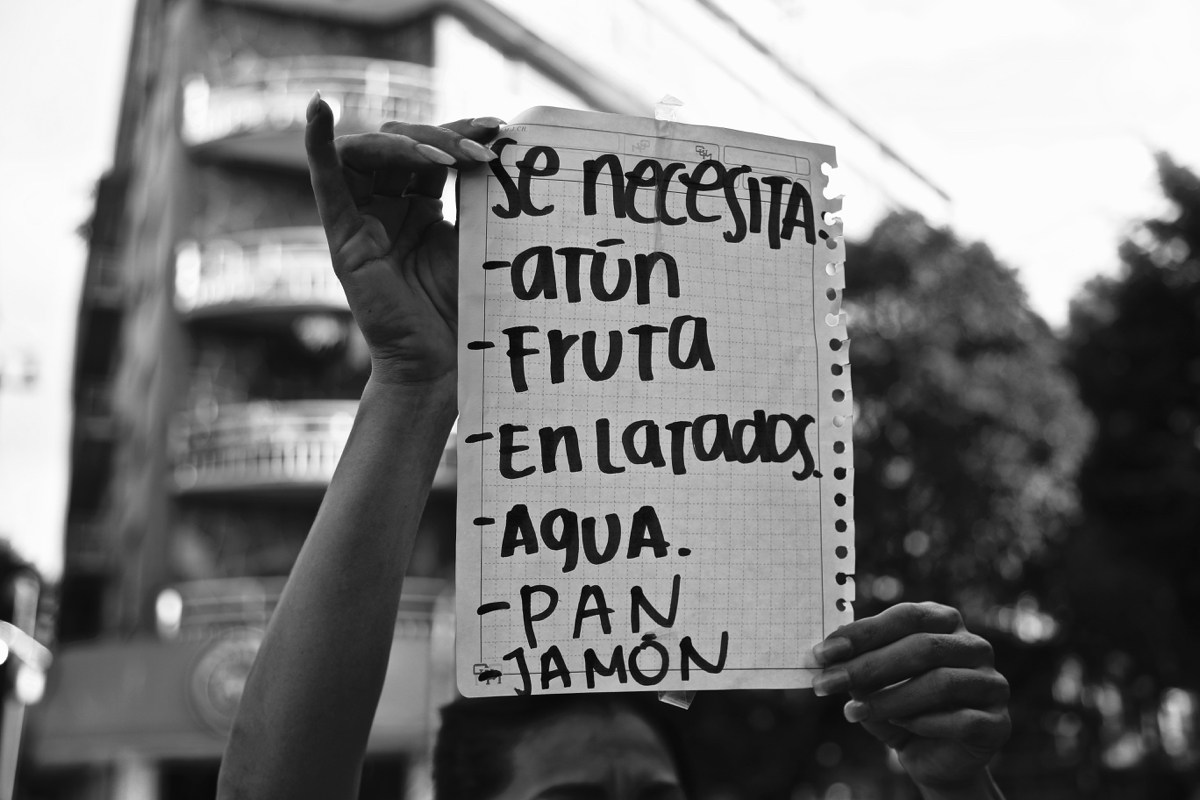 Se necesiTA:
- aTún
- FruTa
- EnLaTados.
- AgUA.
- PAN
- JAMÓN